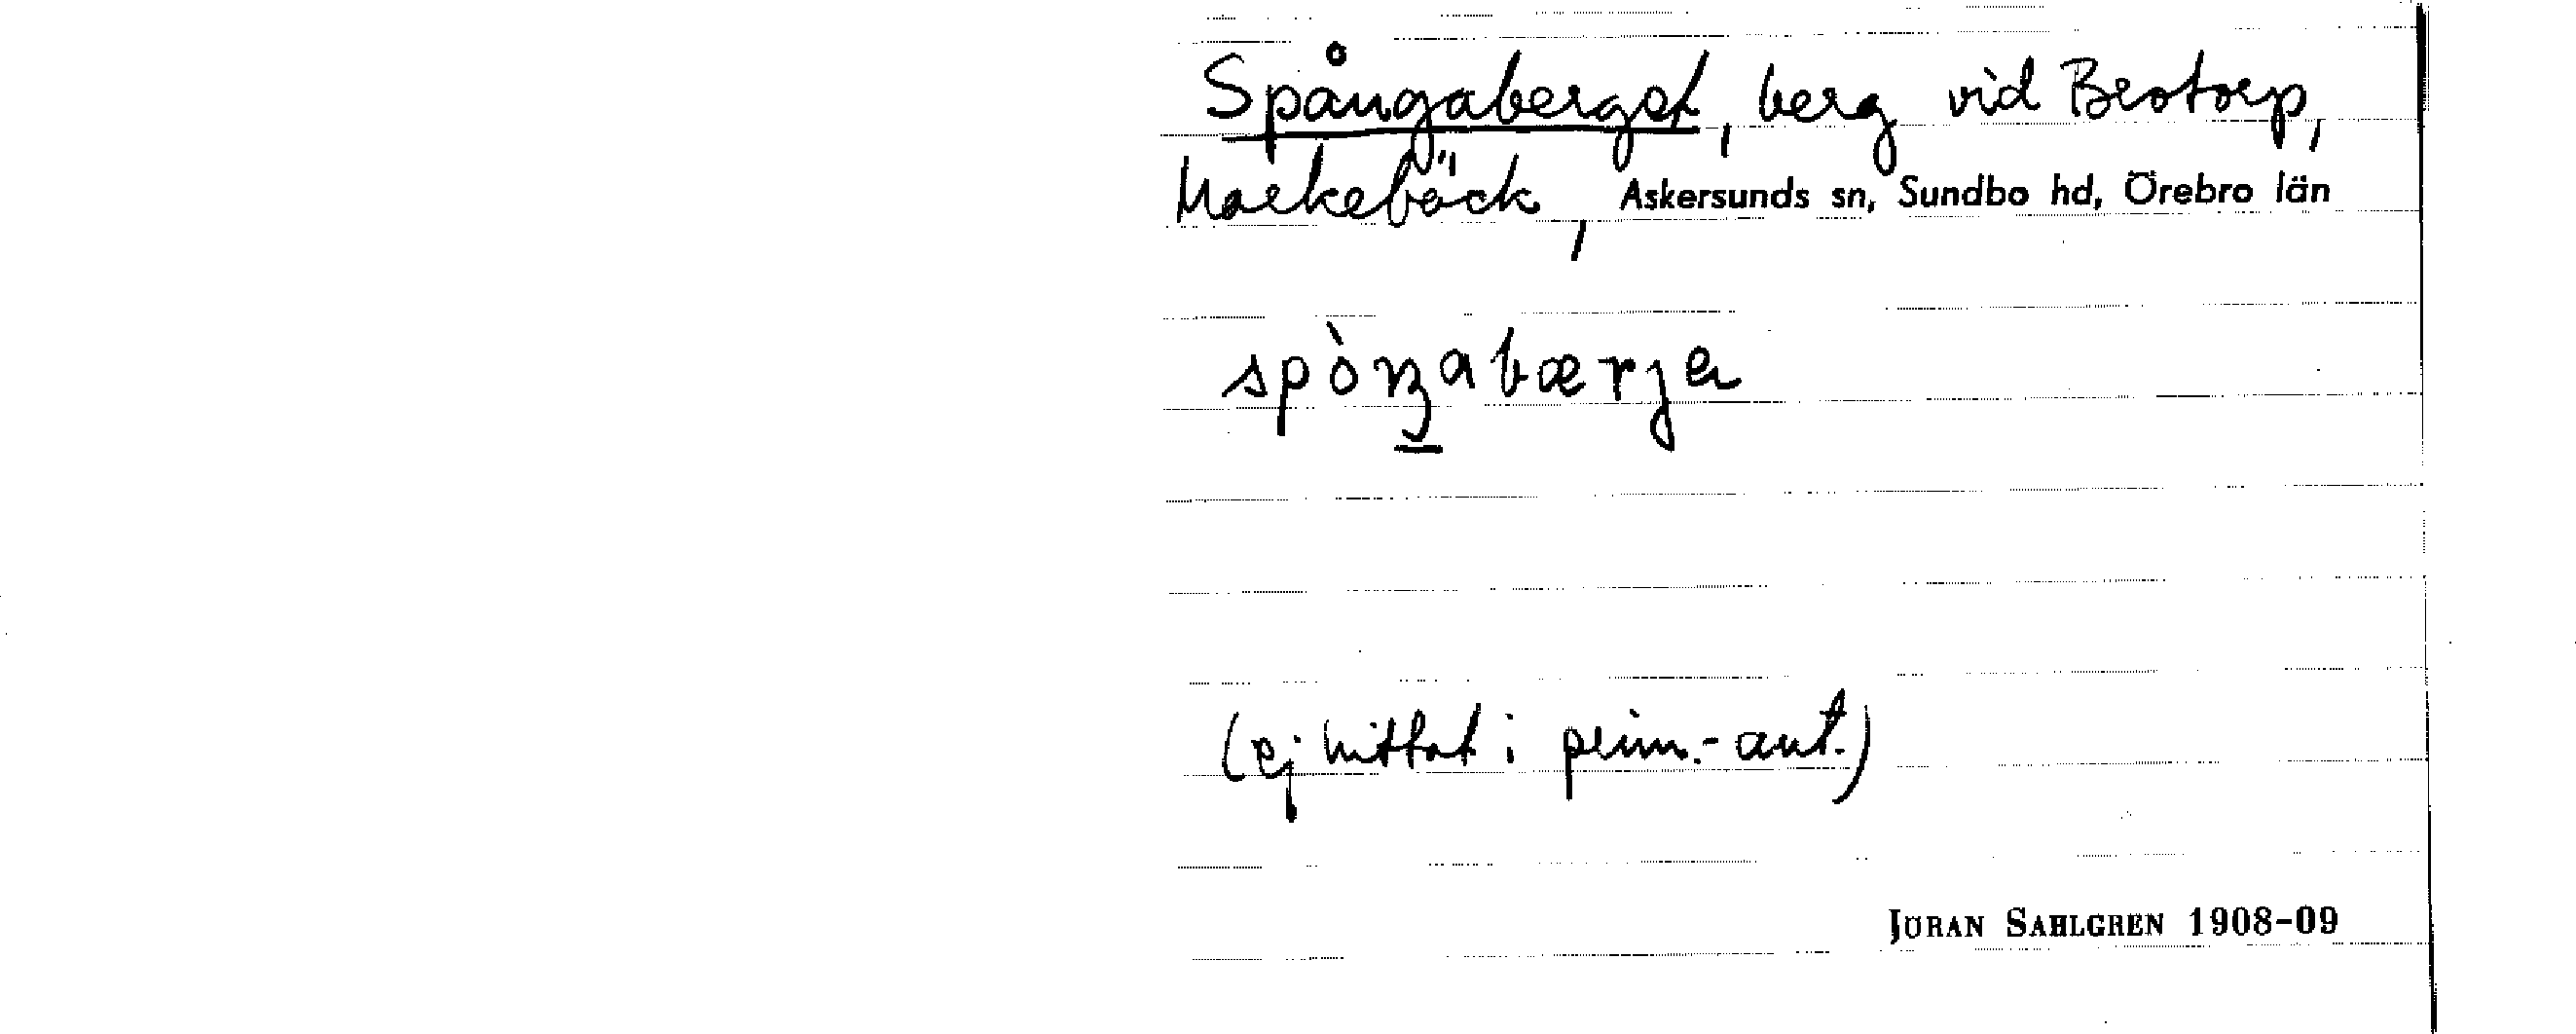 Spångaberget, berg vid Brotorp,
Markebäck, Askersunds sn, Sundbo hd, Örebro län
spòŋabærjə
(ej hittat i prim.-ant.)
JÖRAN SAHLGREN 1908-09